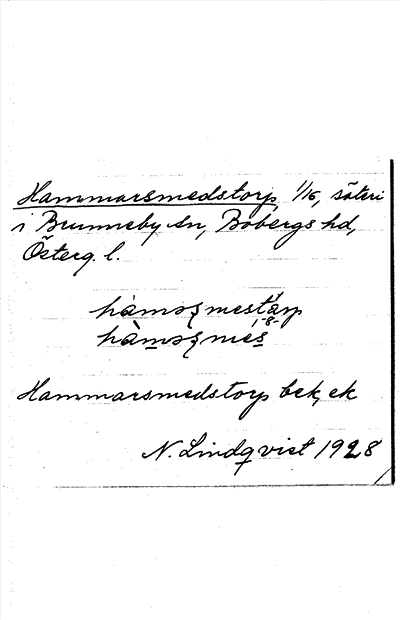 Hammarsmedstorp, 1/16, säteri
i Brunneby sn, Bobergs hd,
Österg. l.
Hammarsmedstorp bek, ek
N. Lindqvist 1928